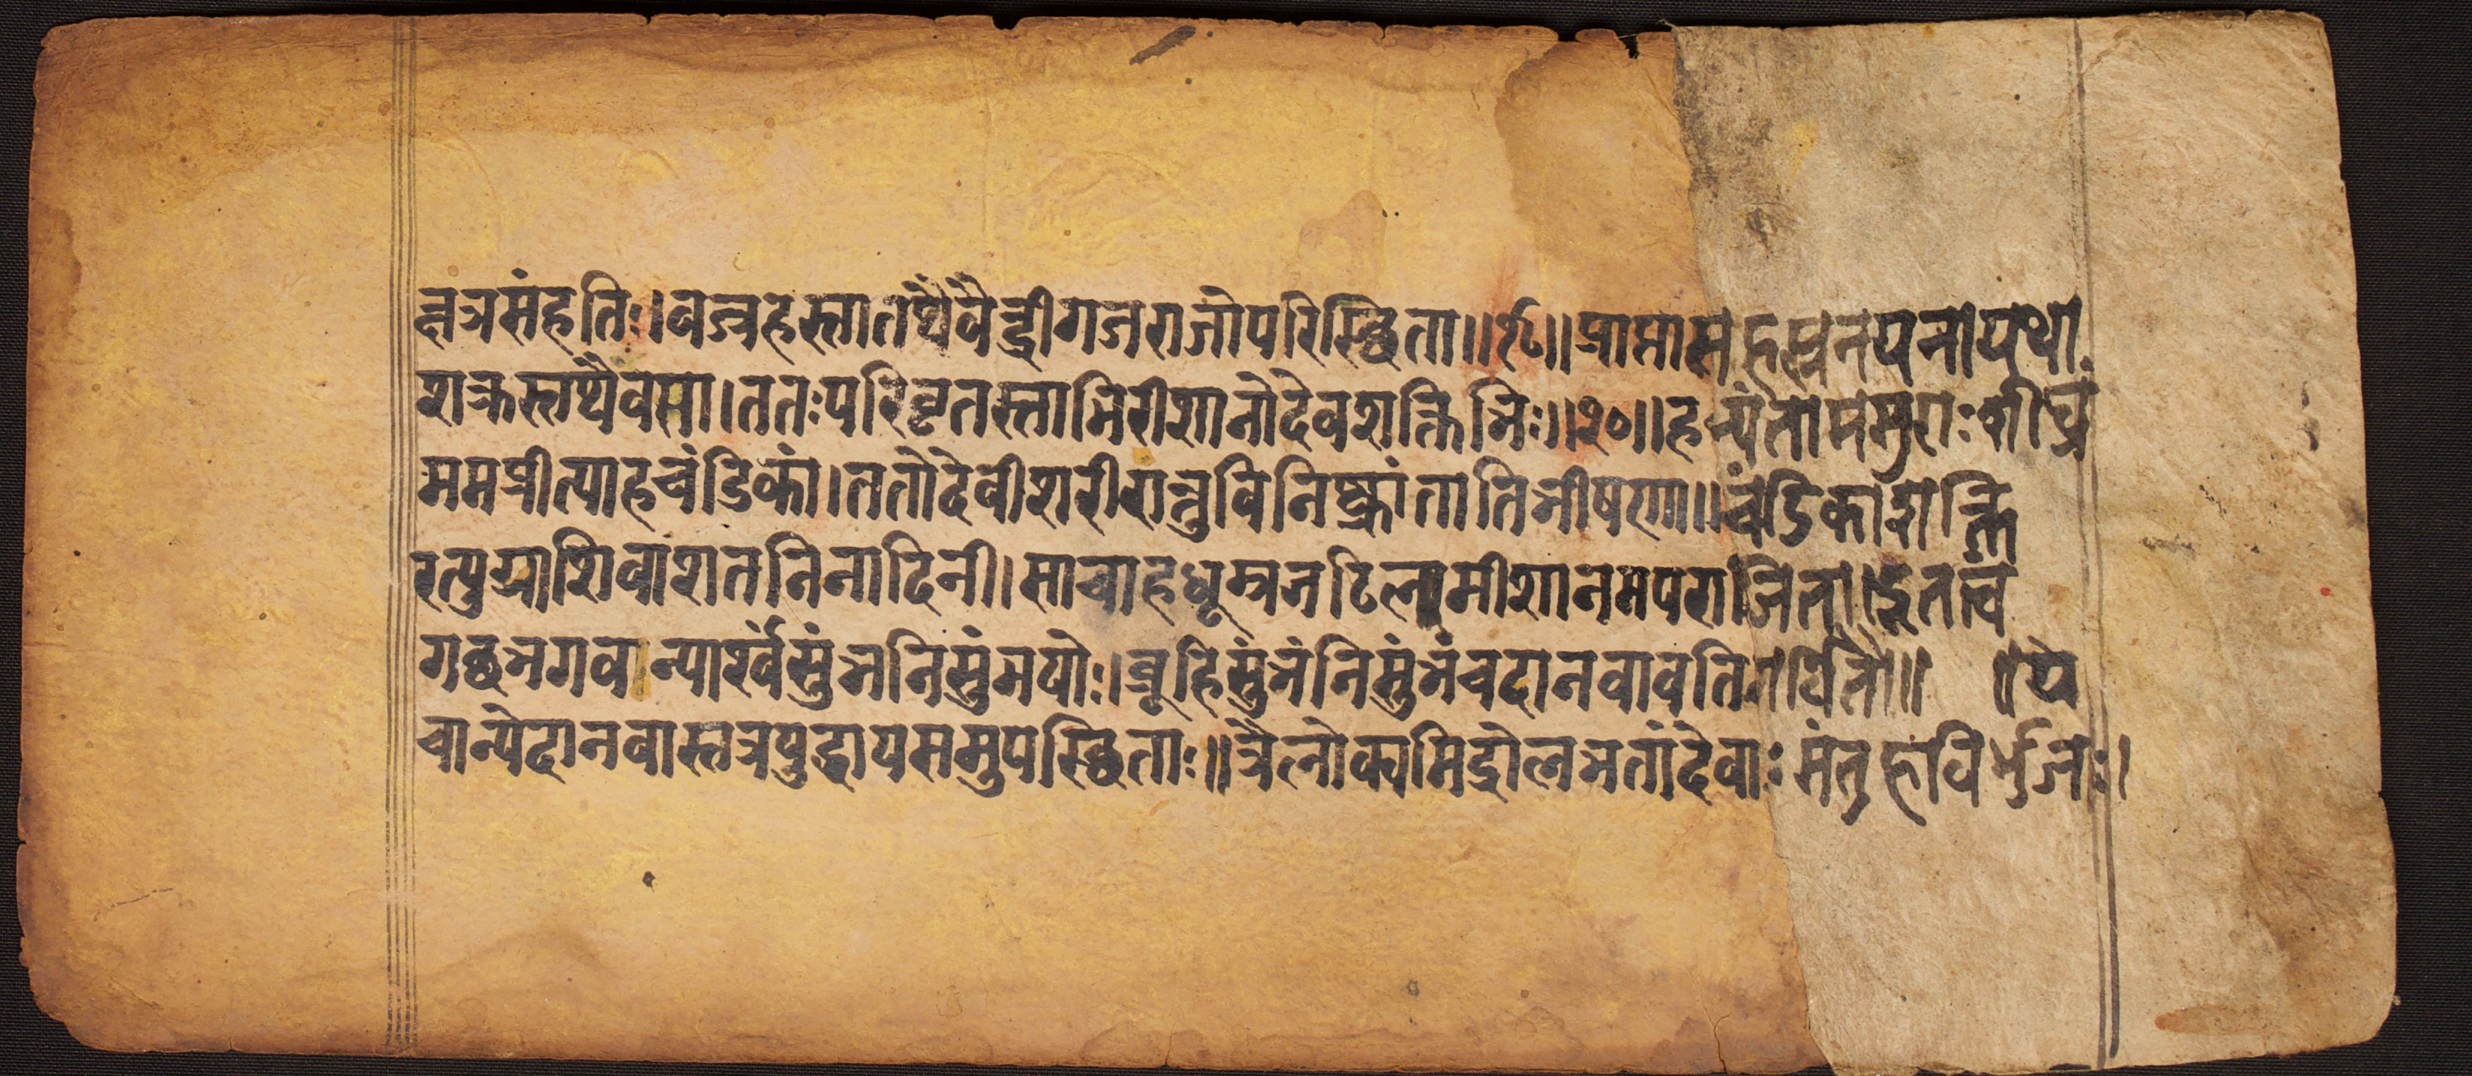 न्नत्रसंहतिः।वज्रहस्तातथैवैन्द्रीगजराजोपरिस्थिता॥१९॥प्राप्तासहस्रनयनायथा
शक्रस्तथैवसा।ततःपरिवृतस्ताभिरीशानोदेवशक्तिभिः॥२०॥हन्यंतामसुराःशीघ्रं
ममप्रीत्याहचंडिकां।ततोदेवीशरीरात्तुविनिष्क्रांतातिभीषणा॥चंडिकाशक्ति
रत्युग्राशिवाशतनिनादिनी।साचाहधूम्रजटिलामीशानमपराजिता।दूतत्वं
गछभगवान्पार्श्वंसुंभनिसुंभयोः।ब्रूहिसुंभंनिसुंभंचदानवावतिगर्वितौ॥ ॥ये
चान्येदानवास्तत्रयुद्धायसमुपस्थिताः॥त्रैलोक्यमिंद्रोलभतांदेवाःसंतुहविर्भुजः।